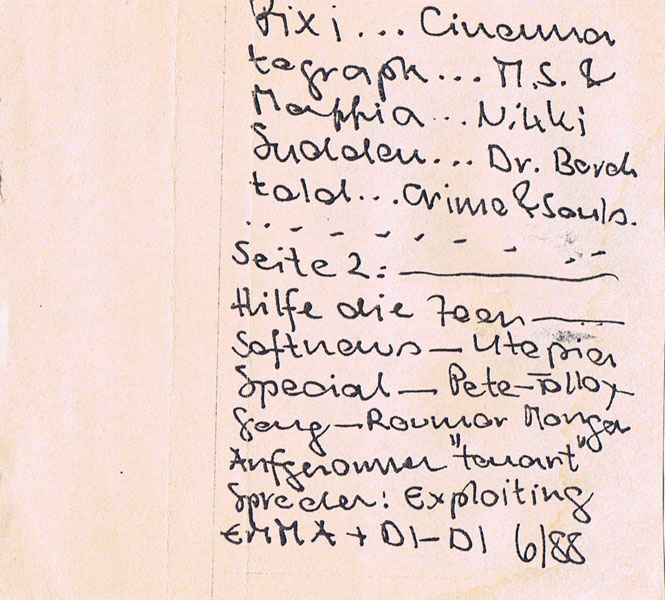 Pixi... Cinema
tograph... M.S. &
Maffia... Nikki
Sudden... Dr. Borch
told... Crime & Souls.
Seite 2:
Hilfe die Feen
Softnews – Utopia
Special –
Gang – Roumor Monger
Aufgenommen
Sprecher: Exploiting
EMMA + DI-DI 6/88